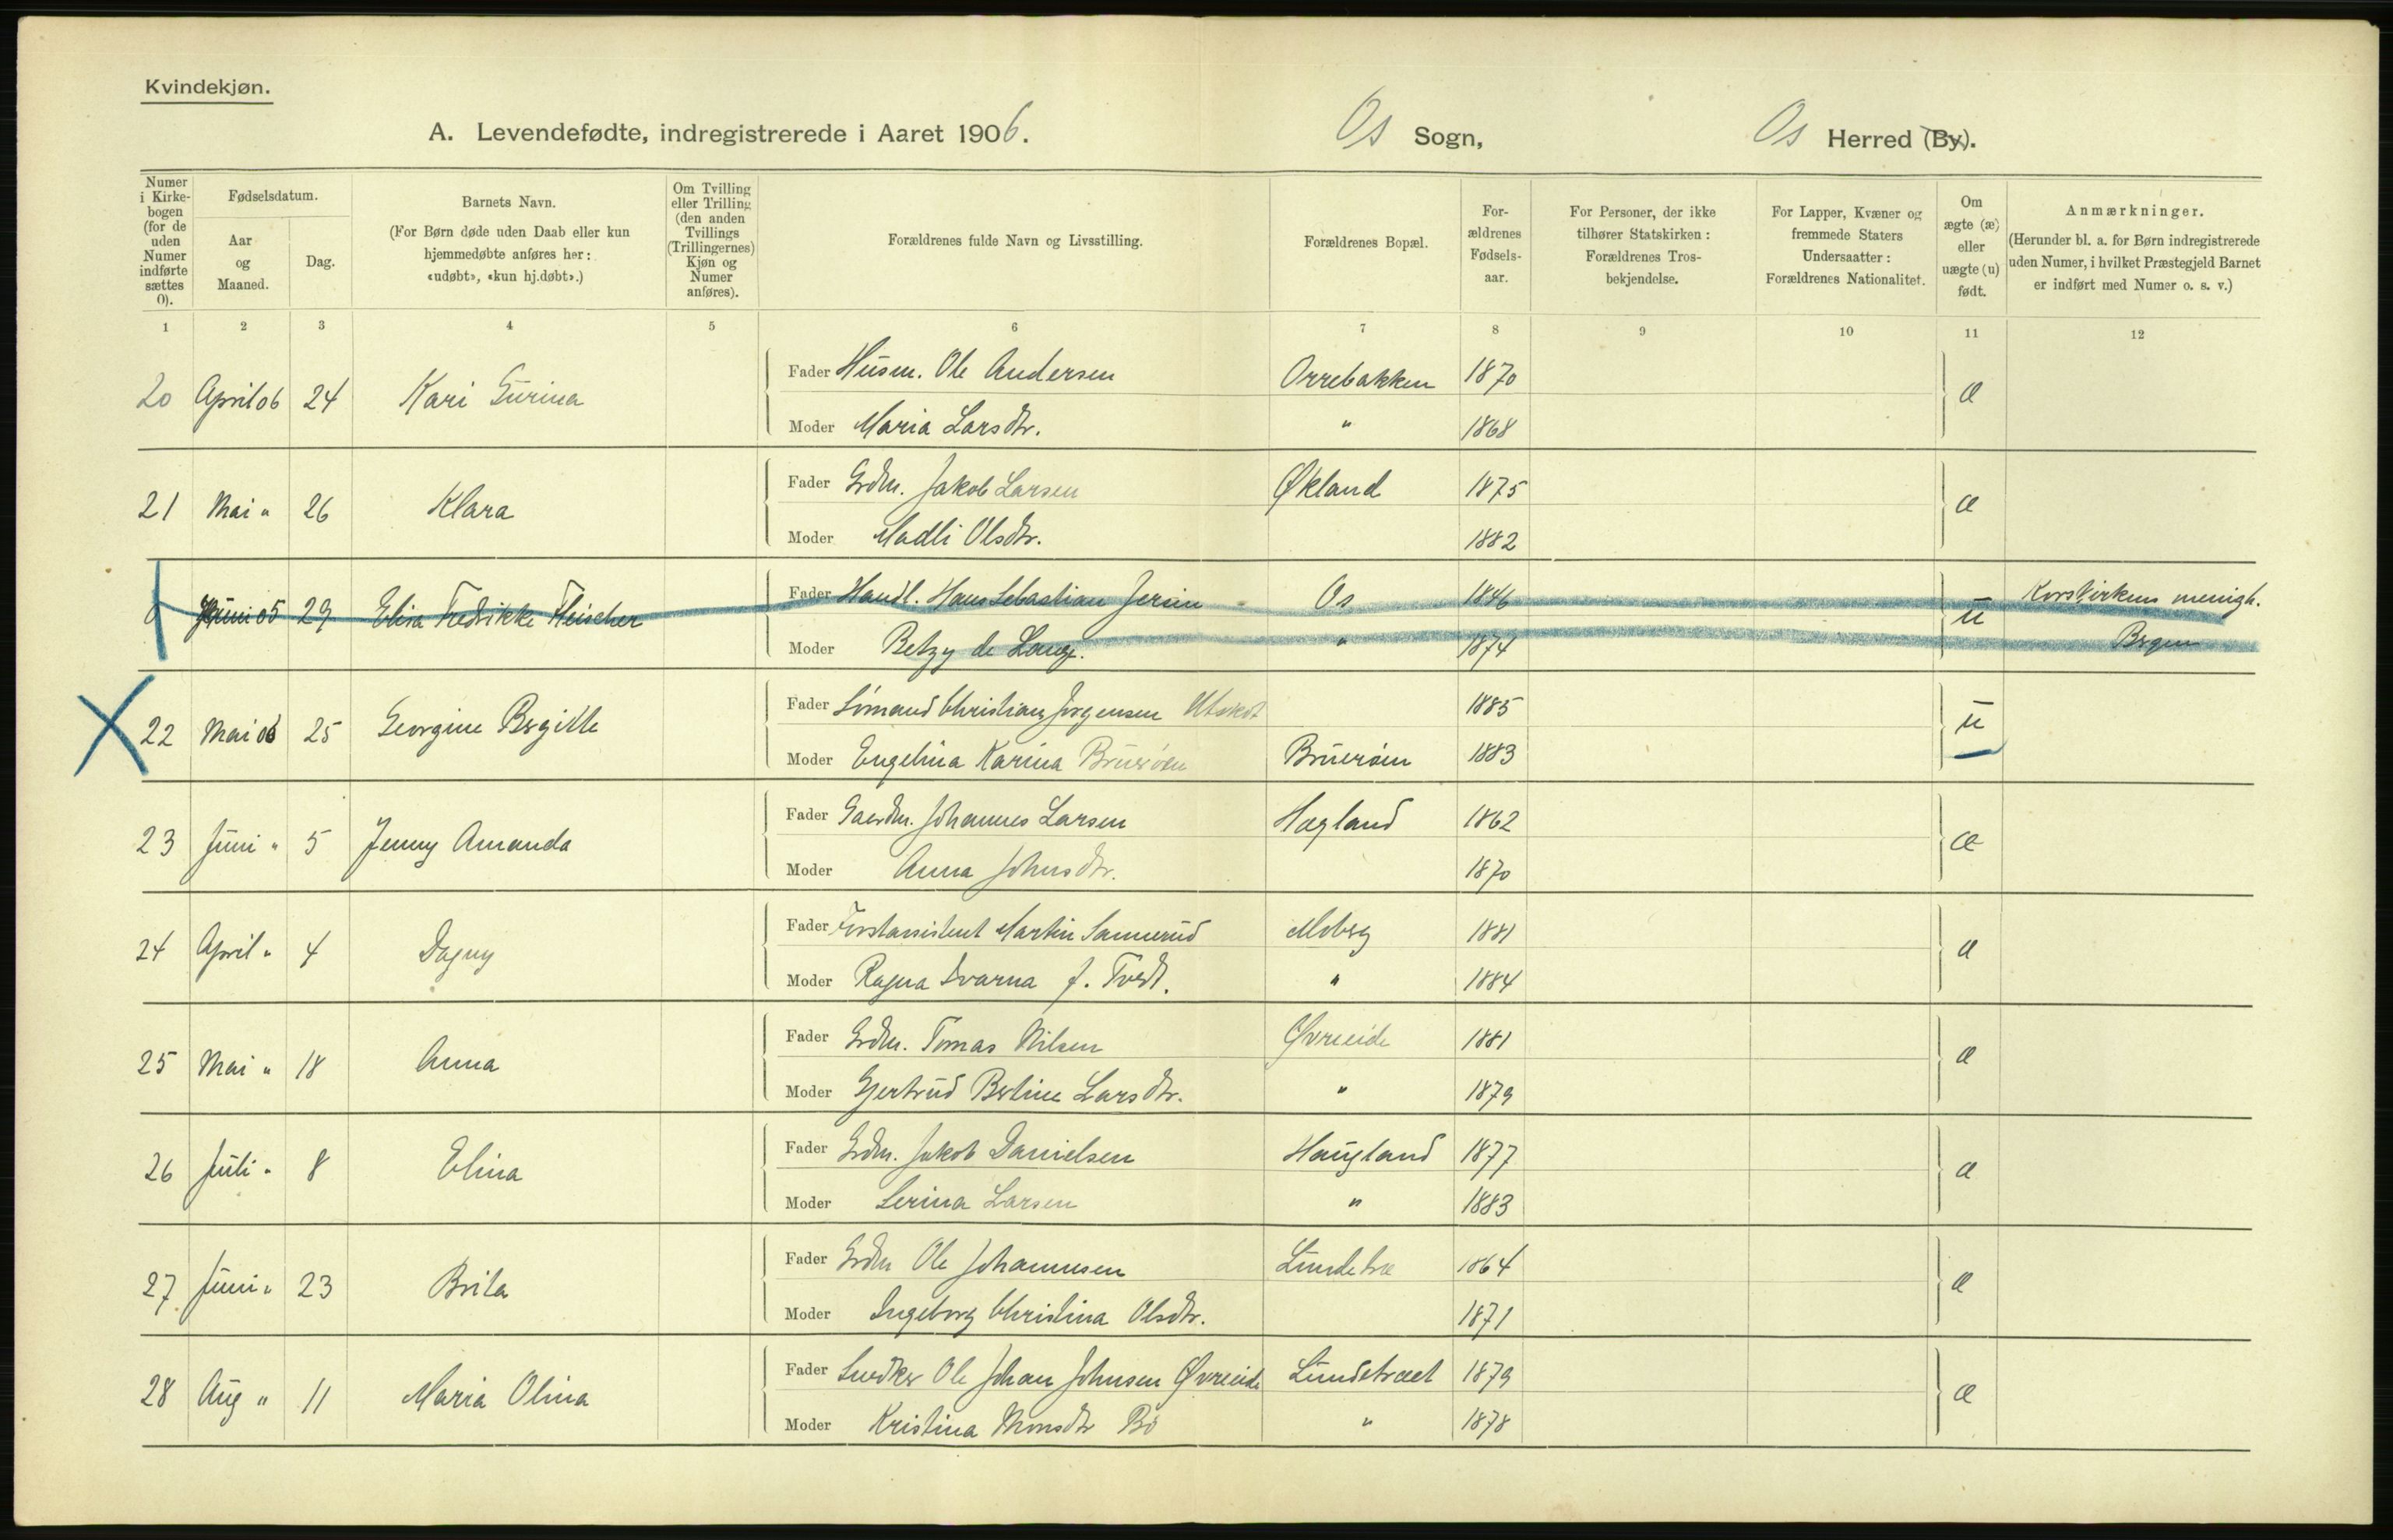 Kvindekjøn.
A. Levendefødte, indregistrerede i Aaret 1906. Os Sogn, Os Herred (By).
Numer i Kirkebogen (for de uden Numer indførte sættes 0).
Fødselsdatum.
Aar og Maaned.
Dag.
Barnets Navn.
(For Børn døde uden Daab eller kun hjemmedøbte anføres her: «udøbt», «kun hj.døbt».)
Om Tvilling eller Trilling (den anden Tvillings (Trillingernes) Kjøn og Numer anføres).
Forældrenes fulde Navn og Livsstilling.
Forældrenes Bopæl.
Forældrenes Fødselsaar.
For Personer, der ikke tilhører Statskirken: Forældrenes Trosbekjendelse.
For Lapper, Kvæner og fremmede Staters Undersaatter: Forældrenes Nationalitet.
Om ægte (æ) eller uægte (u) født.
Anmærkninger.
(Herunder bl. a. for Børn indregistrerede uden Numer, i hvilket Præstegjeld Barnet er indført med Numer o. s. v.)
1 2 3 4 5 6 7 8 9 10 11 12
20 April 06 24 Kari Gurina Fader Husm. Ole Andersen Orrebakken 1870 æ
Moder Maria Larsdtr. " 1868
21 Mai " 26 Klara Fader Grdm. Jakob Larsen Økland 1875 æ
Moder Madli Olsdtr. 1882
0 Juni 05 29 Elisa Fredrikke Fleischer Fader Handl. Hans Sebastian Jersin Os 1846 u Korskirkens menigh.
Moder Betzy de Lange. " 1874 Bergen
22 Mai 06 25 Georgine Bergitte Fader Sömand Christian Jørgensen 1885 u
Moder Engelina Karina Bruerøen Bruerøen 1883
23 Juni " 5 Jenny Amanda Fader Gaardm. Johannes Larsen Hægland 1862 æ
Moder Anna Johnsdtr. 1870
24 April " 4 Dagny Fader Forstassistent Martin Sannerud Moberg 1881 æ
Moder Ragna Svarna f. Tvedt. " 1884
25 Mai " 18 Anna Fader Grdm. Tomas Nilsen Øvreeide 1881 æ
Moder Gjertrud Bertine Larsdtr. " 1879
26 Juli " 8 Elina Fader Grdm. Jakob Danielsen Haugland 1877 æ
Moder Serina Larsen " 1883
27 Juni " 23 Brita Fader Grdm Ole Johannesen Lundetræ 1864 æ
Moder Ingeborg Christina Olsdtr. 1871
28 Aug " 11 Maria Olina Fader Snedker Ole Johan Johnsen Øvreeide Lundetræet 1879 æ
Moder Kristina Monsdtr Bö " 1878